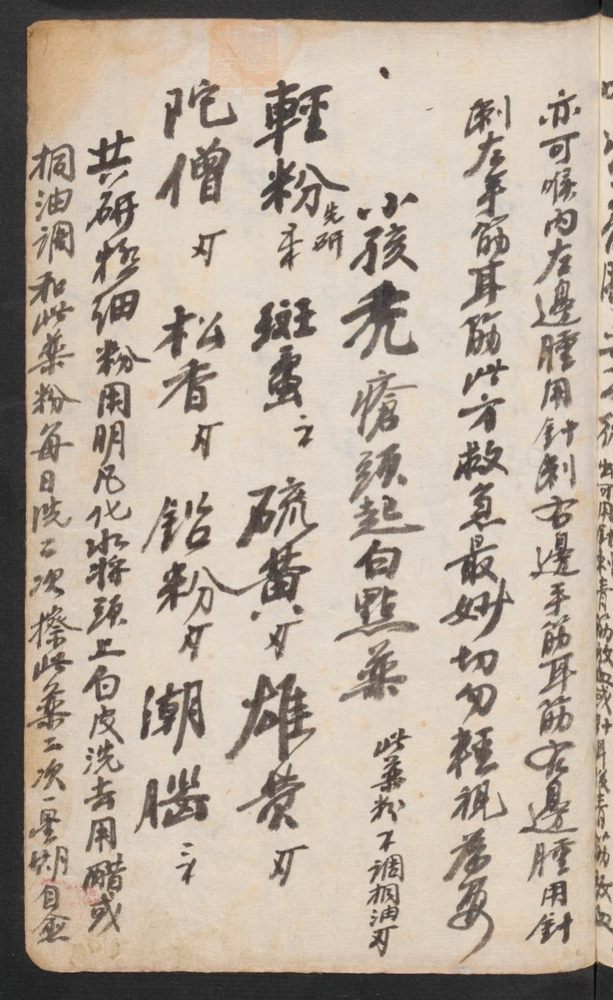 亦可喉内左邊腫用針刺右邊手筋耳筋右邊腫用針
刺左手筋耳筋此方救急最妙切勿輕視為要
小孩禿瘡頭起白點藥 此藥粉不調桐油可
輕粉 先研 斑蝥 硫黄 雄黄
陀僧 松香 鉛粉 潮腦
共研極細粉用明凡化水將頭上白皮洗去用醋或
桐油調和此藥粉每日洗二次擦此藥二次一星期自愈